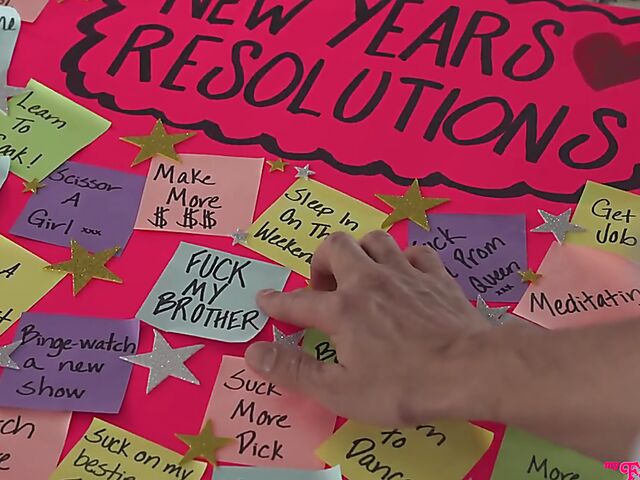 NEW YEARS
RESOLUTIONS
Learn
To
Scissor
A
Girl xxx
Make
More
$ $$ $
Sleep In
On The
Weekend
Prom
Queen
xxx
Get
Job
A
FUCK
MY
BROTHER
Meditatin
Binge-watch
a new
show
Suck
More
Dick
Suck on my
bestie
to
Dance
More
my